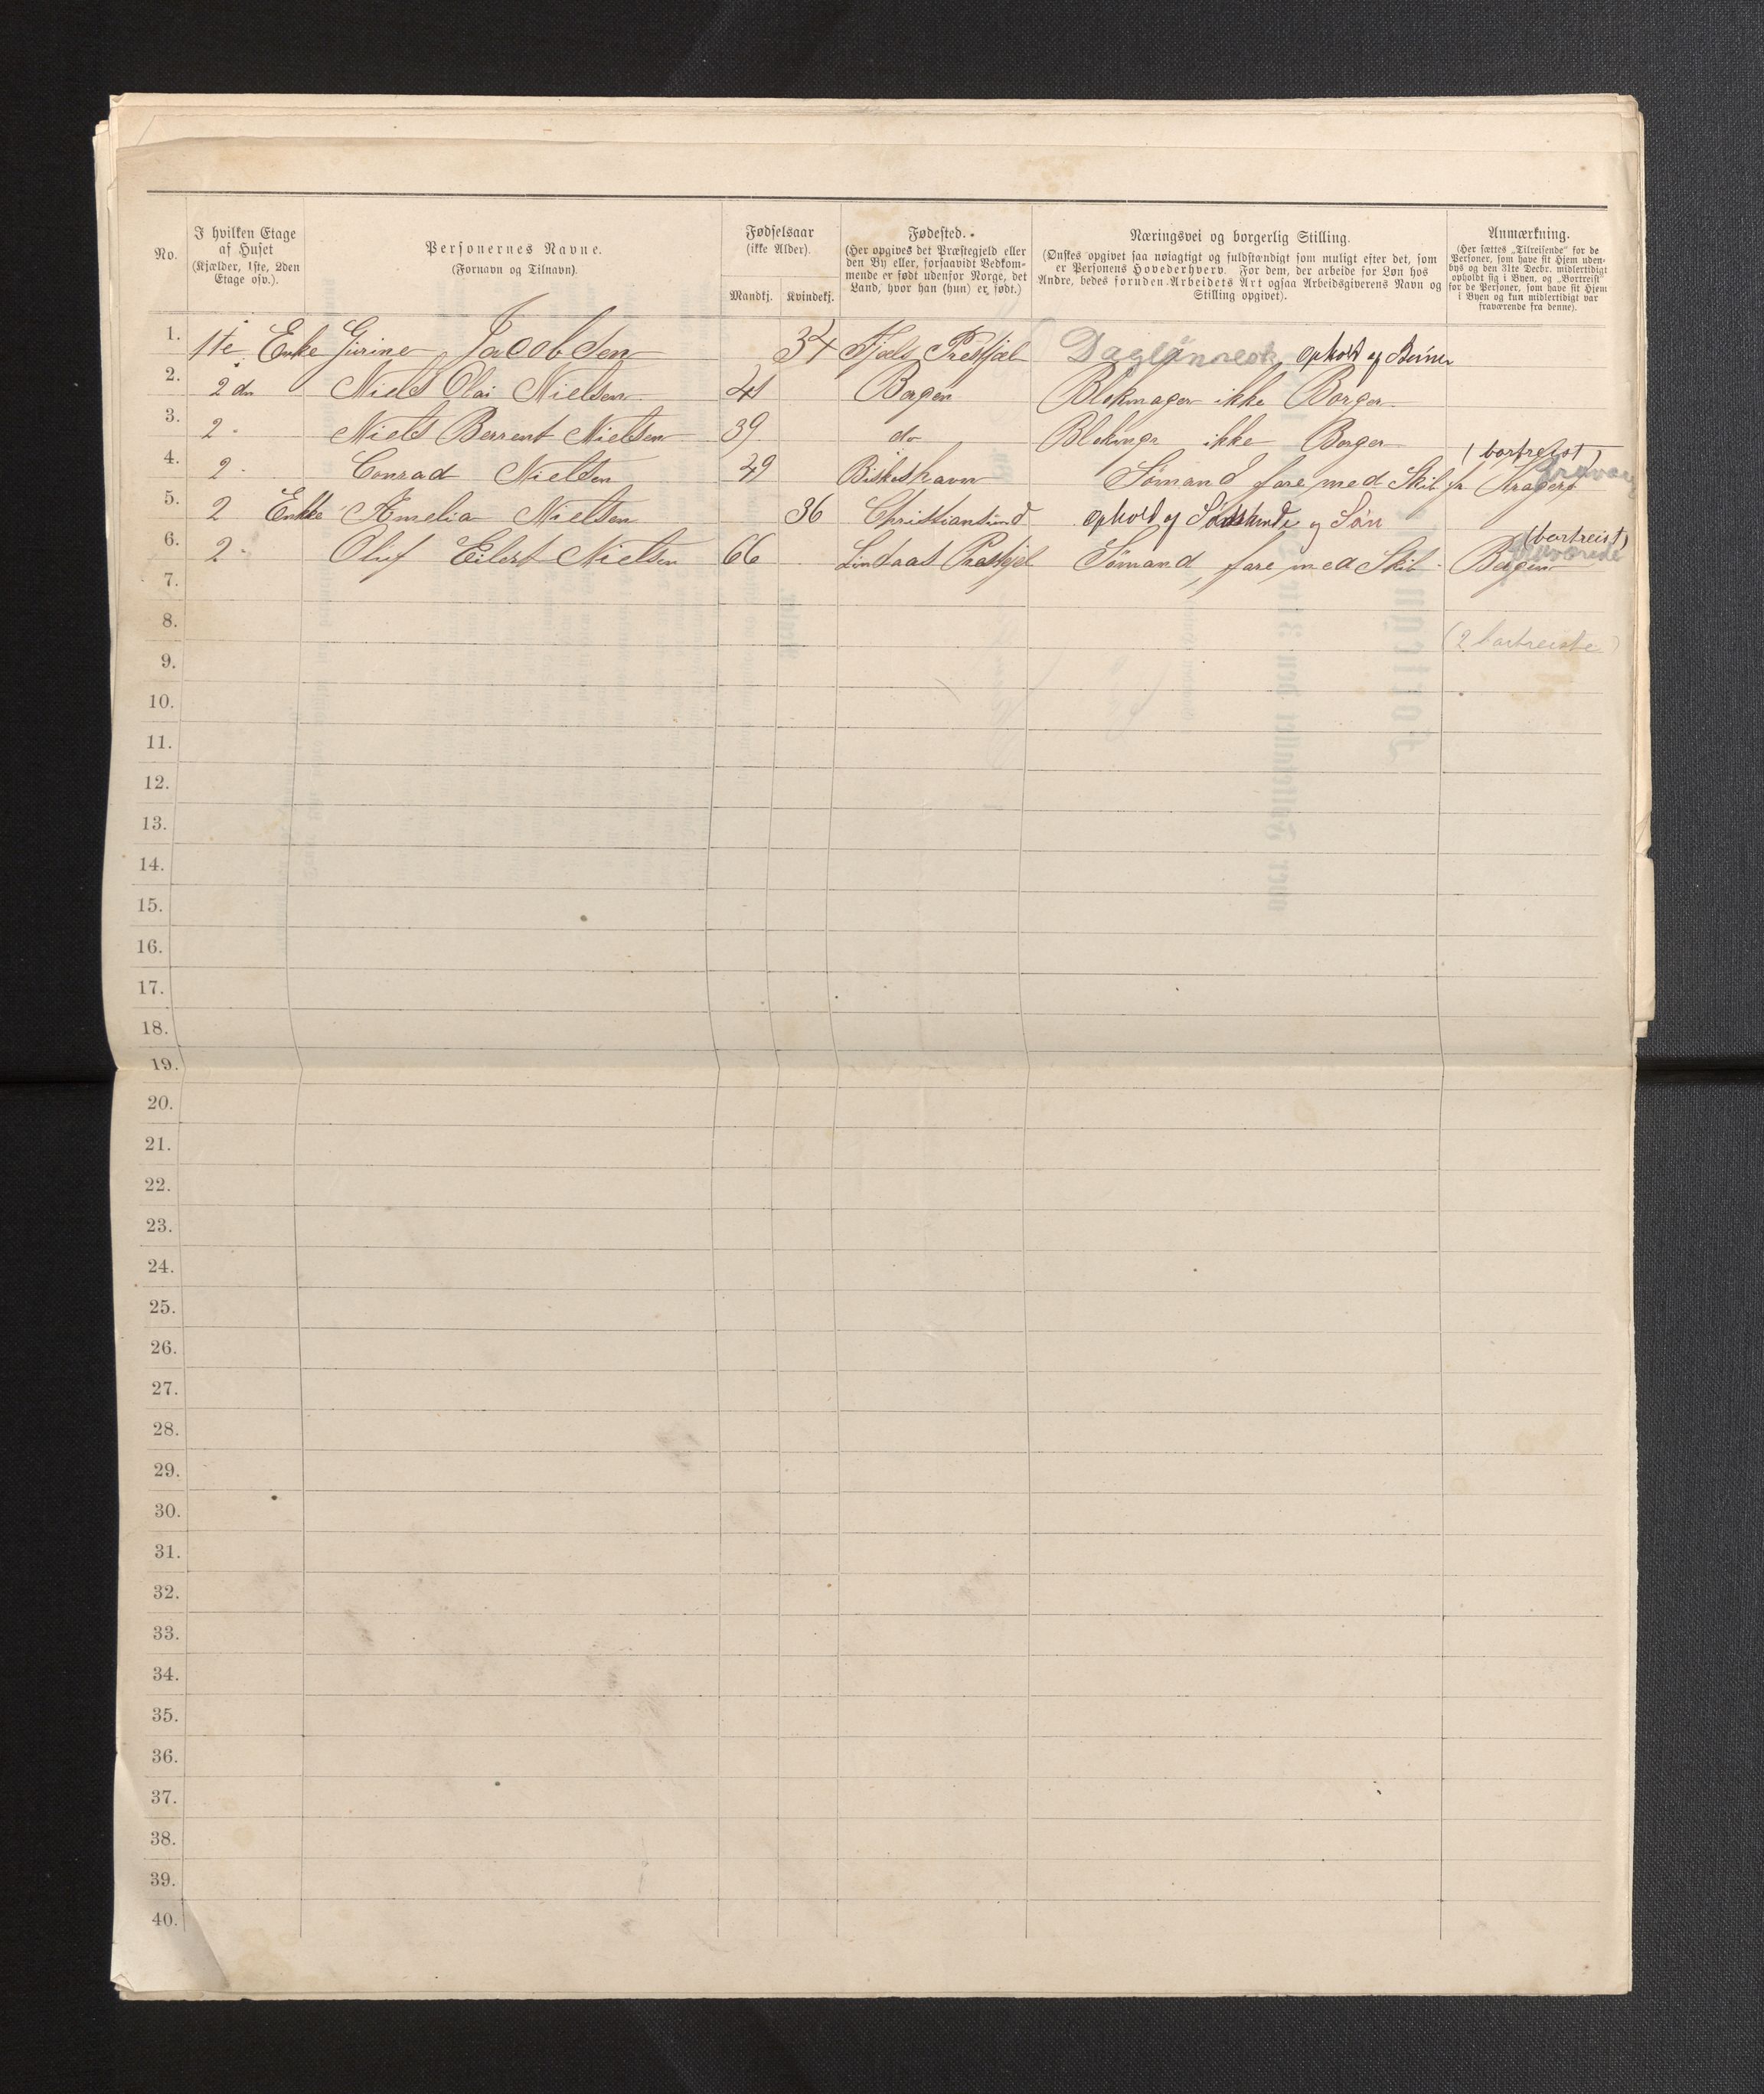 No.
I hvilken Etage
af Huset
(Kjælder, 1ste, 2den
Etage osv.).
Personernes Navne.
(Fornavn og Tilnavn).
Fødselsaar
(ikke Alder).
Mandkj. Kvindekj.
Fødested.
(Her opgives det Præstegjeld eller
den By eller, forsaavidt Vedkom-
mende er født udenfor Norge, det
Land, hvor han (hun) er født.)
Næringsvei og borgerlig Stilling.
(Ønskes opgivet saa nøiagtigt og fuldstændigt som muligt efter det, som
er Personens Hovederhverv. For dem, der arbeide for Løn hos
Andre, bedes foruden Arbeidets Art ogsaa Arbeidsgiverens Navn og
Stilling opgivet).
Anmærkning.
(Her sættes „Tilreisende“ for de
Personer, som have sit Hjem uden-
bys og den 31te Decbr. midlertidigt
opholdt sig i Byen, og „Bortreist“
for de Personer, som have sit Hjem
i Byen og kun midlertidigt var
fraværende fra denne).
1. 1te Enke Gjurine Jacobsen 34 Fjæls Prestjæl Daglønnersk ophold af Børnene
2. 2den Niels Olai Nielsen 41 Bergen Blokmager ikke Borger
3. 2 - Niels Berrent Nielsen 39 do Blokmager ikke Borger
(bortreist)
4. 2 - Conrad Nielsen 49 Biskoshavn Sømand fare med Skib fr Kragerø
5. 2 Enke Amelia Nielsen 36 Christiansund ophold af og Søn
(bortreist)
6. 2 - Oluf Eilert Nielsen 66 Lindaas Prestgjel Sømand fare med Skib - Bergen
fraværende
7.
8.
(2 bortreiste)
9.
10.
11.
12.
13.
14.
15.
16.
17.
18.
19.
20.
21.
22.
23.
24.
25.
26.
27.
28.
29.
30.
31.
32.
33.
34.
35.
36.
37.
38.
39.
40.